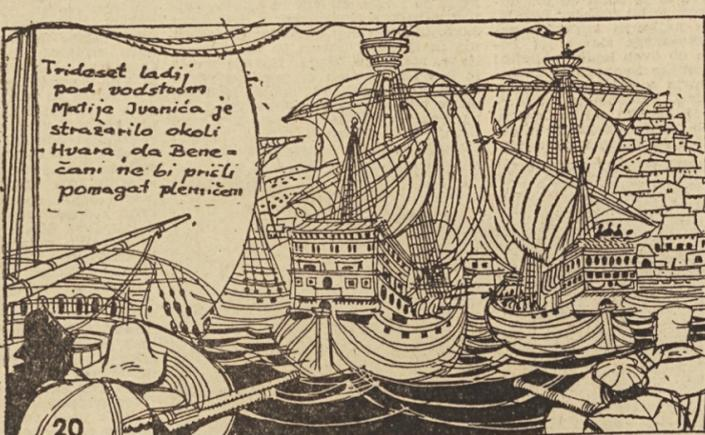 Trideset ladij
pod vodstvom
Matije Ivanića je
stražarilo okoli
Hvara, da Bene=
čani ne bi prišli
pomagat plemičem
20